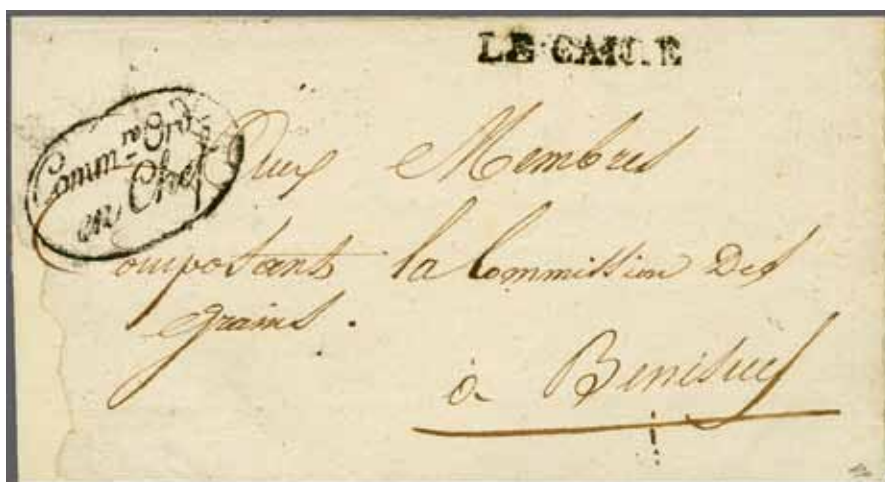 LE CAIRE
Comm.re Ord.r
en Chef
Aux Membres
Composants la Commission Des
grains.
à Benisuef